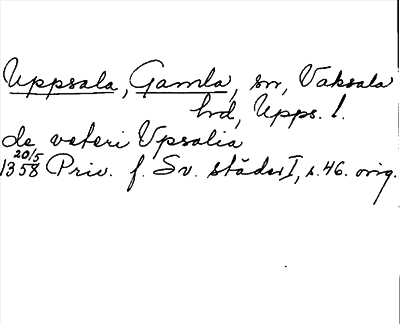 Uppsala, Gamla, sn, Vaksala
hd, Upps. l.
de veteri Vpsalia
20/5
1358 Priv. f. Sv. städer I, s. 46. orig.